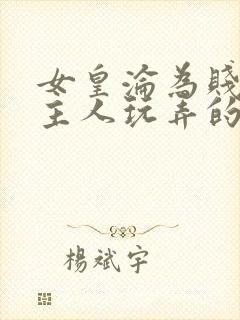 女皇淪為賤
主人玩弄的
楊斌宇